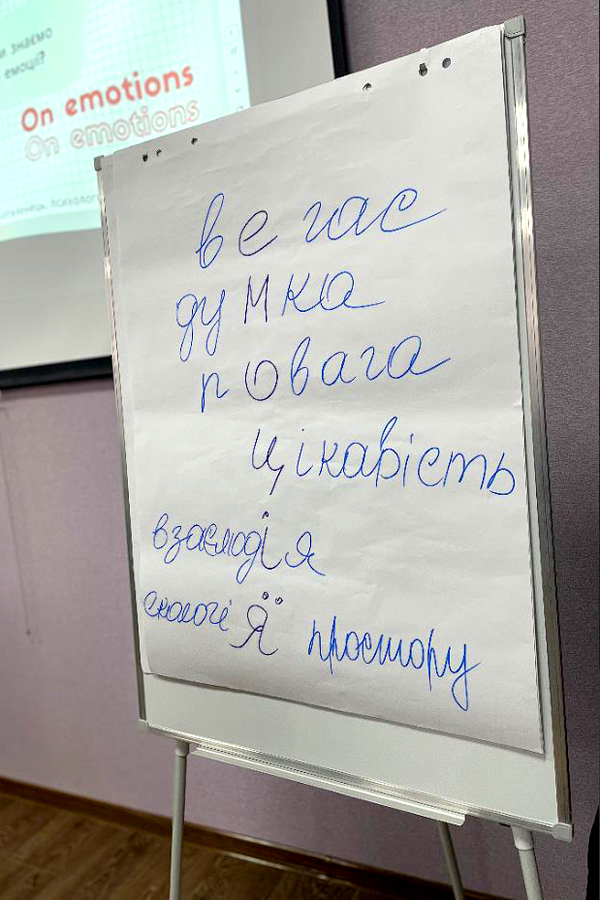 и знаємо
емоції?
On emotions
On emotions
вегас
думка
повага
цікавість
взаємодія
екологіЯ̈ простору